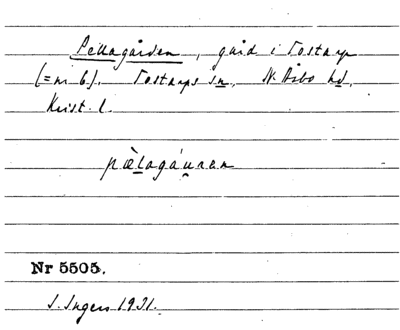 Pellagården, gård i Tostarp
(= nr 6). Tostarps sn. N. Åsbo hd.
Krist. l.
pæ̀lagá́uran
Nr 5505.
S. Ingers 1931.